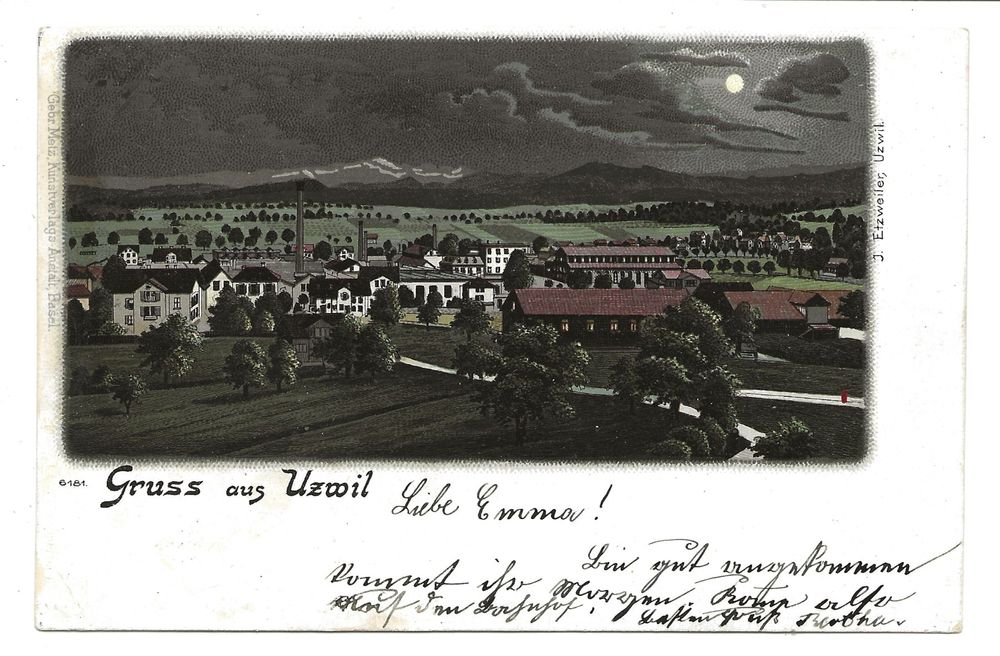 Gebr. Metz, Kunstverlags-Anstalt, Basel.
J. Etzweiler, Uzwil.
6181. Gruss aus Uzwil
Liebe Emma!
Bin gut angekommen
kommt ihr Morgen, Kome also
Auf den Bahnhof!
Besten Gruß Bertha.